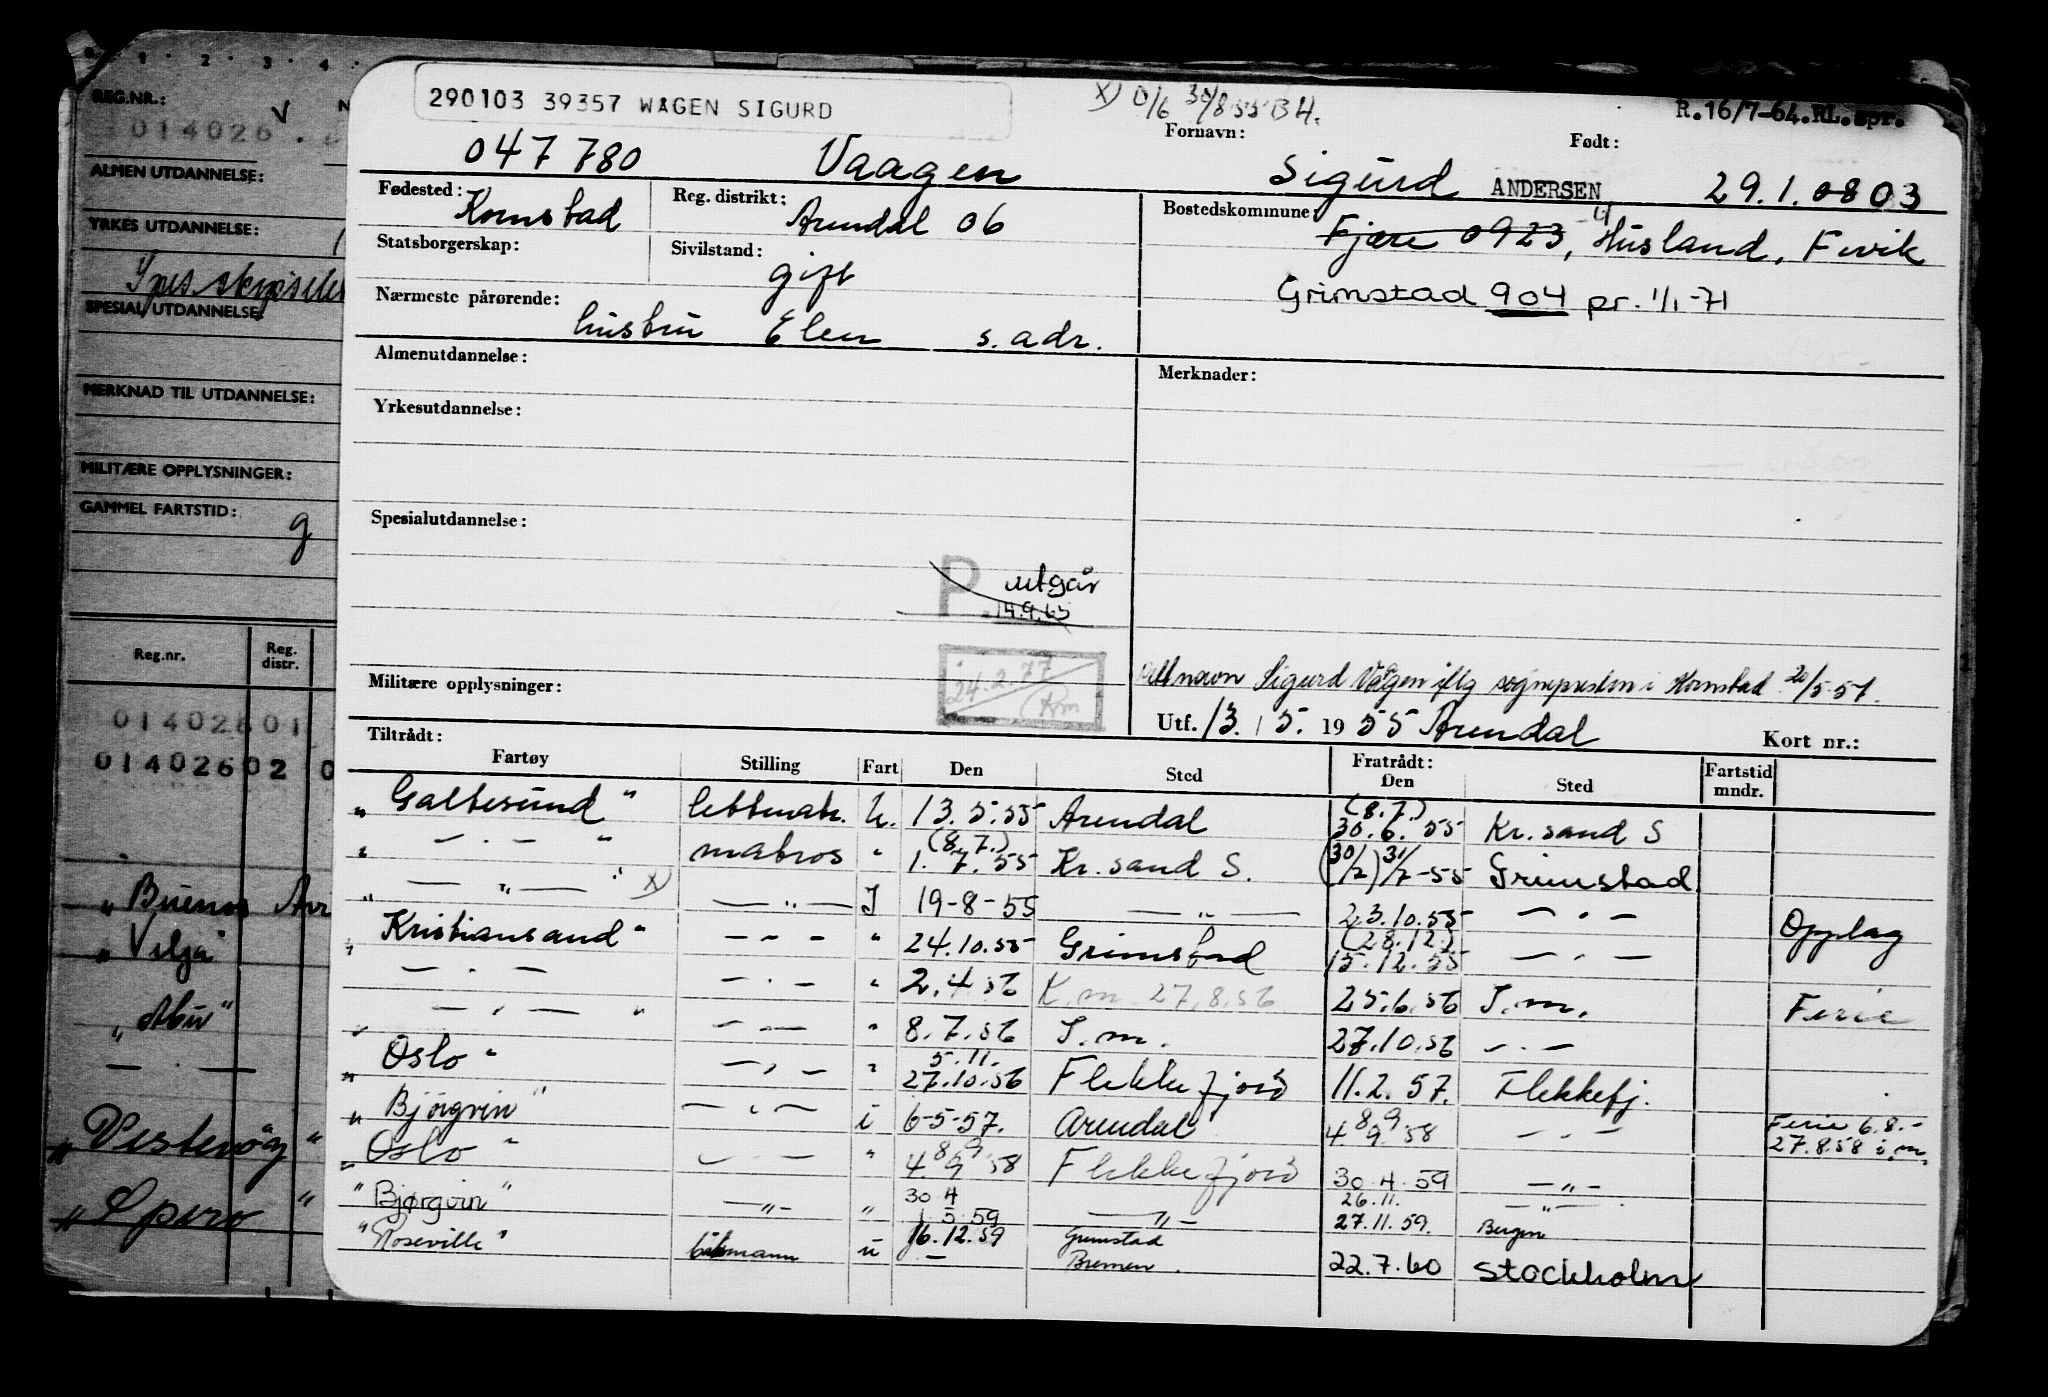 290103 39357 WÅGEN SIGURD
X) 0/6 30/8 55 B4.
R.16/7-64.RL.spr.
Fornavn:
Født:
047 780 Vaagen Sigurd ANDERSEN 29.1.0803
Fødested: Kornstad
Reg. distrikt: Arendal 06
Bostedskommune: Fjære 0923, Husland, Fevik
Statsborgerskap:
Sivilstand: gift
Grimstad 904 pr. 1/1-71
Nærmeste pårørende: hustru Elen s. adr.
Almenutdannelse:
Merknader:
Yrkesutdannelse:
Spesialutdannelse:
P. utgår
14.9.65
24.2.77
Km
Militære opplysninger:
navn Sigurd Vågen iflg sognepresten i Kornstad 20/5-57.
Utf. 13. / 5. 1955 Arendal
Kort nr.:
Tiltrådt:
Fratrådt:
Fartøy Stilling Fart Den Sted Den Sted Fartstid mndr.
"Galtesund" lettmatr. U. 13.5.55 Arendal (8.7.) 30.6.55 Kr.sand S
" — . — " matros " (8.7.) 1.7.55 Kr.sand S. (30/7) 31/7-55 Grimstad
" — " — " X) — " — I 19-8-55 — " — 23.10.55 — " — Opplag
"Kristiansand" — " — " 24.10.55 Grimstad (28.12.) 15.12.55 — " —
— " — — " — " 2.4.56 K.m. 27.8.56 25.6.56 I.m. Ferie
" — " — " — " — " 8.7.56 I.m. 27.10.56 — " —
"Oslo" — " — " 5.11. 27.10.56 Flekkefjord 11.2.57. Flekkefj.
"Bjørgvin" — " — i 6-5-57. Arendal 4 8/9 9 58 — " — Ferie 6.8.-
27.8.58 i.m.
"Oslo" — " — " 4 8/9 9 58 Flekkefjord 30.4.59 — " —
"Bjørgvin" — " — " 30 4 1 5 59 — " — 26.11. 27.11.59. — " — Bergen
"Roseville" båtsmann u 16.12.59 Grimstad
— Bremen. 22.7.60 Stockholm
REG.NR.:
014026
ALMEN UTDANNELSE:
YRKES UTDANNELSE:
SPESIAL UTDANNELSE:
MERKNAD TIL UTDANNELSE:
MILITÆRE OPPLYSNINGER:
GAMMEL FARTSTID:
Reg.nr. Reg. distr.
01402601
01402602 0
"Buenos Air
"Velja"
"Abu"
— . —
"Vestenøy"
"Spero"